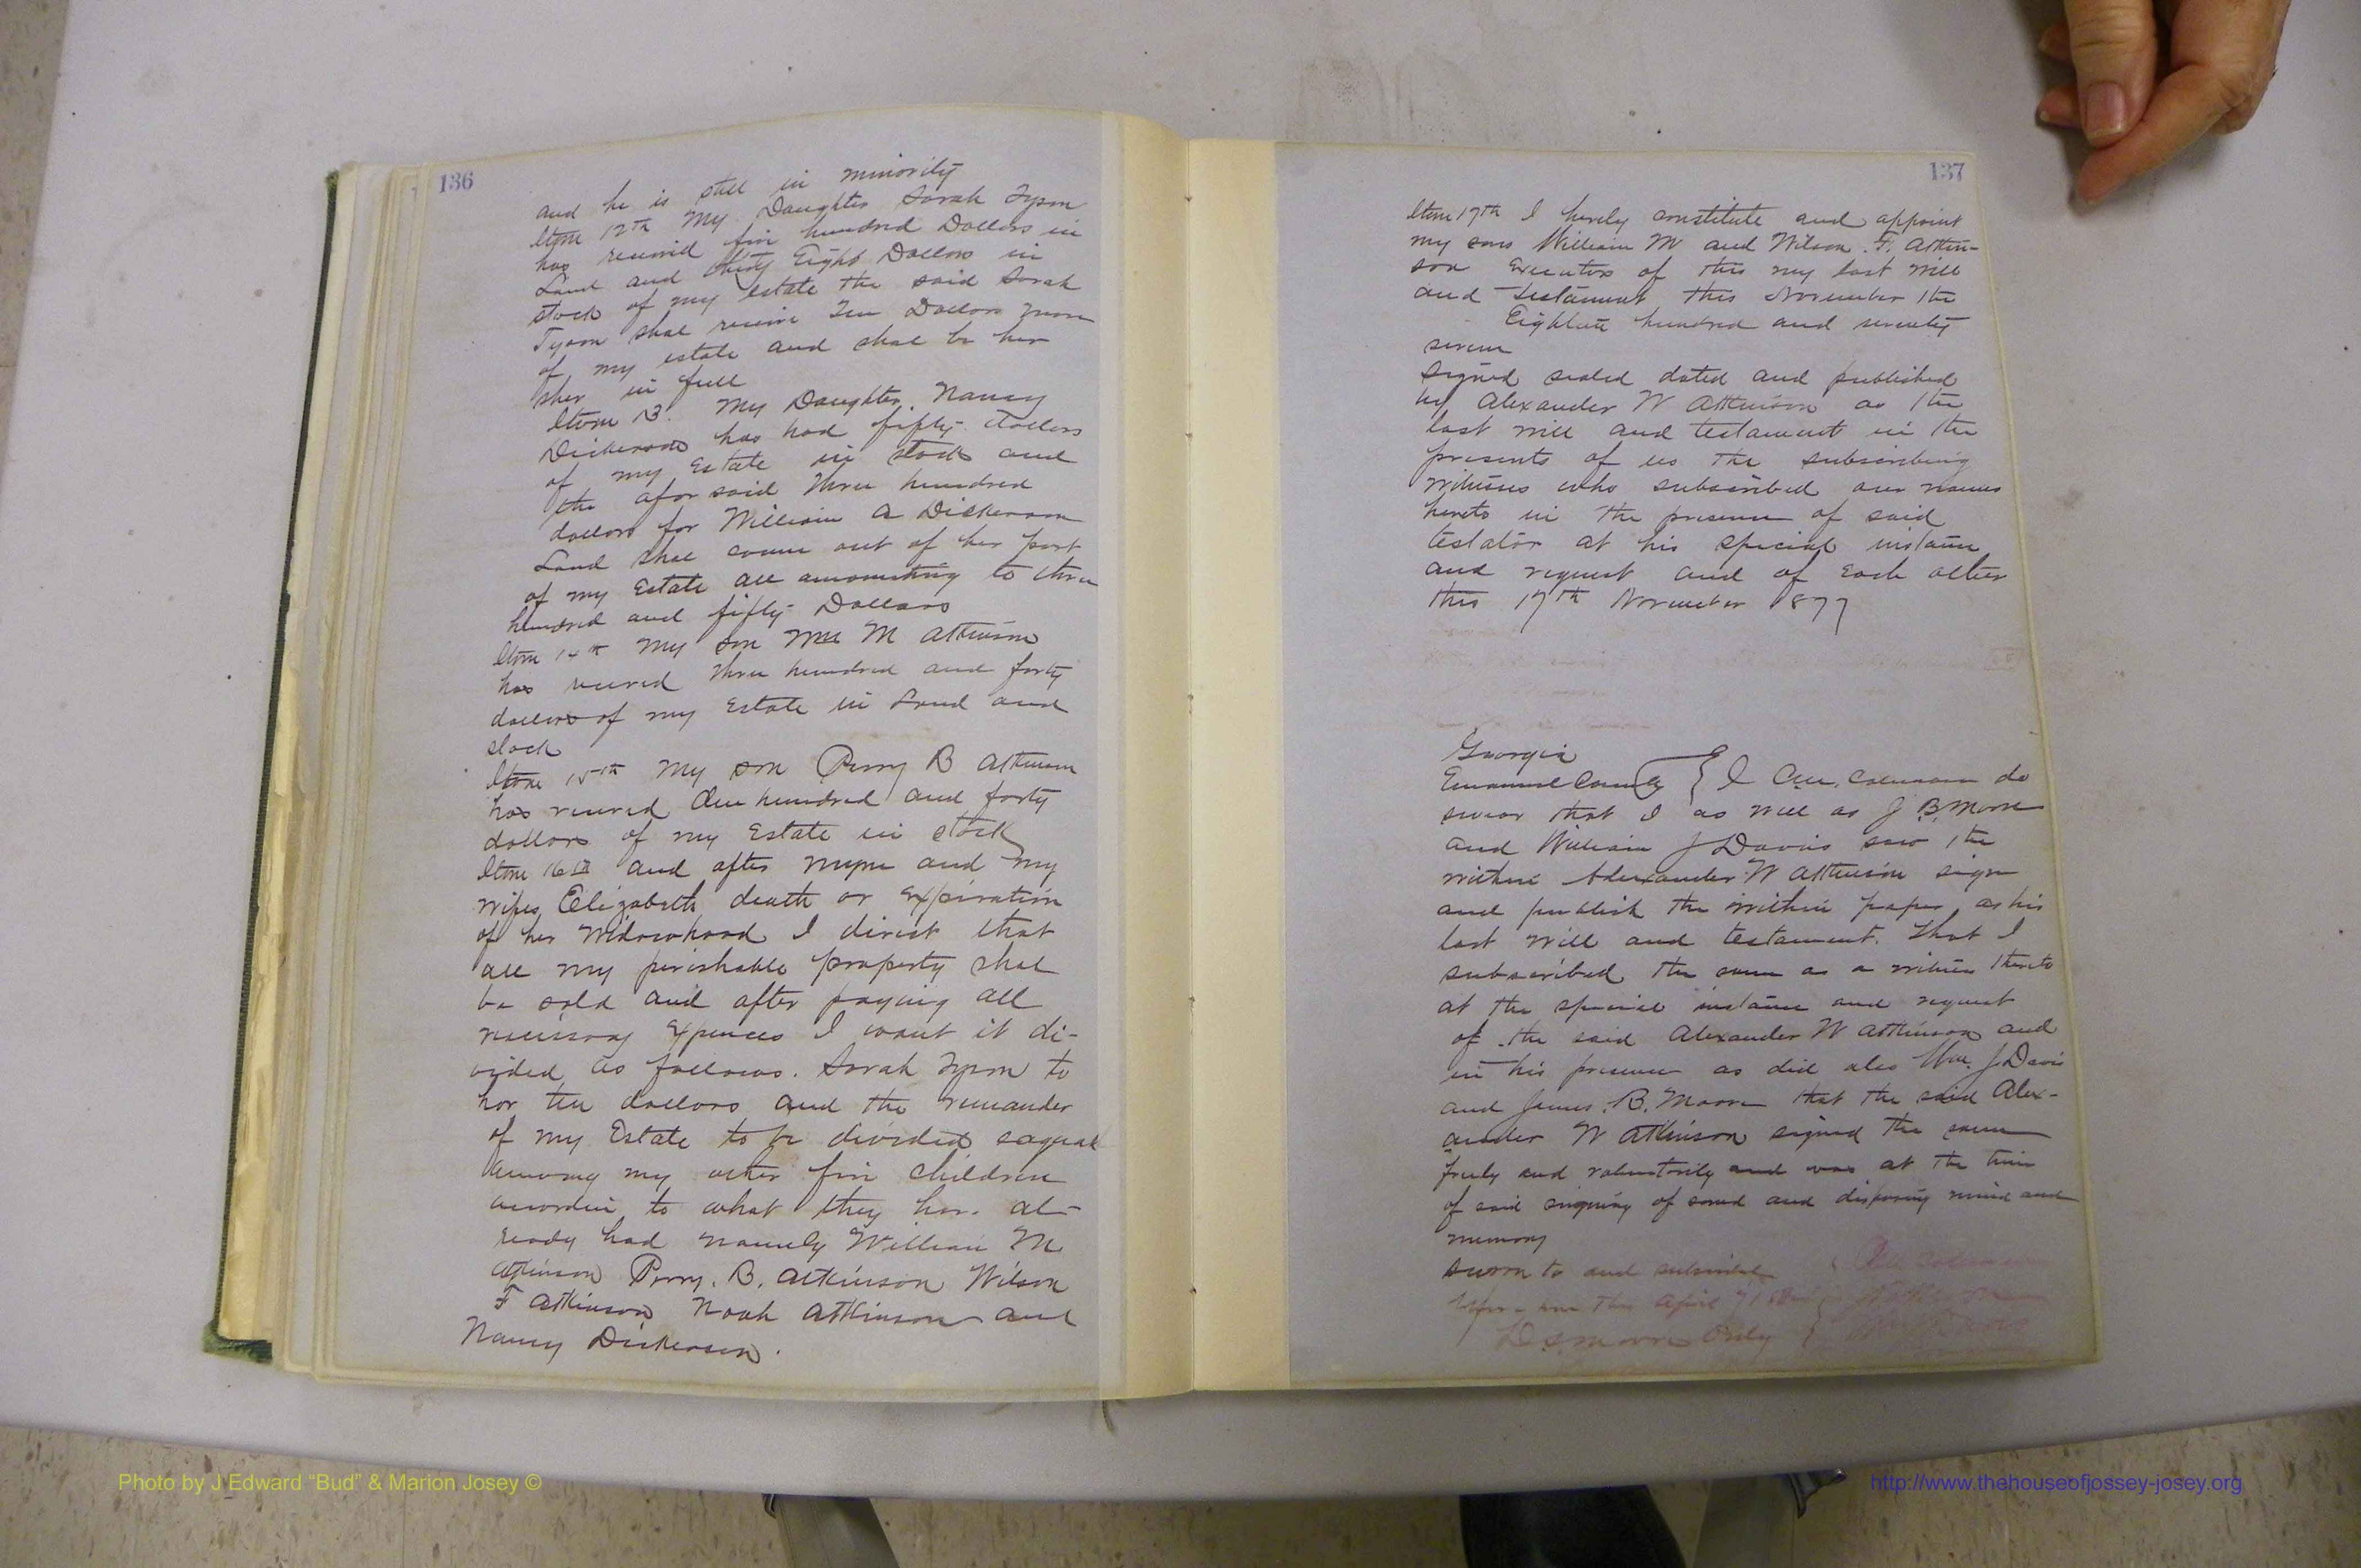 136
and he is still in minority
Item 12th My Daughter Sarah Tyson
has received five hundred Dollars in
Land and thirty Eight Dollars in
stock of my estate the said Sarah
Tyson shal receive Ten Dollars more
of my estate and shal be her
sher in full
Item 13. My Daughter Nancy
Dickerson has had fifty dollars
of my Estate in stock and
the afor said three hundred
dollars for William A Dickerson
Land shal come out of her part
of my Estate all amounting to three
hundred and fifty Dollars
Item 14th My son Wm M Atkinson
has received three hundred and forty
dollars of my Estate in Land and
stock
Item 15th My son Perry B Atkinson
has received One hundred and forty
dollars of my Estate in stock
Item 16th and after myne and my
wifes Elizabeth death or expiration
of her Widowhood I direct that
all my perishable property shal
be sold and after paying all
necissary Expences I want it di-
vided as follows. Sarah Tyson to
hav ten dollars and the remander
of my Estate to be divided eaqual
among my other five children
accordin to what they hav al-
ready had namely William M
Atkinson Perry. B. Atkinson Wilson
F Attkinson Noah Attkinson and
Nancy Dickerson.
137
Item 17th I hereby constitute and appoint
my sons William M and Wilson. F. Atkin-
son Executors of this my last will
and testament this November the
Eighteen hundred and seventy
seven
Signed sealed dated and published
by Alexander W Attkinson as the
last will and testament in the
presents of us the subscribing
witnesses who subscribed our names
hereto in the presence of said
testator at his special instance
and request and of Each other
this 17th November 1877
Georgia
Emanuel County } I Coleman do
swear that I as well as J B. Moore
and William J Davis saw the
within Alexander W Attkinson sign
and publish the within paper as his
last will and testament. that I
subscribed the same as a witness thereto
at the special instance and request
of the said Alexander W Attkinson and
in his presence as did also Wm. J. Davis
and James. B. Moore that the said Alex-
ander W Atkinson signed the same
freely and voluntarily and was at the time
of said signing of sound and disposing mind and
memory
Sworn to and subscribed
me this April
Moore Ordy
Photo by J Edward “Bud” & Marion Josey ©
http://www.thehouseofjossey-josey.org